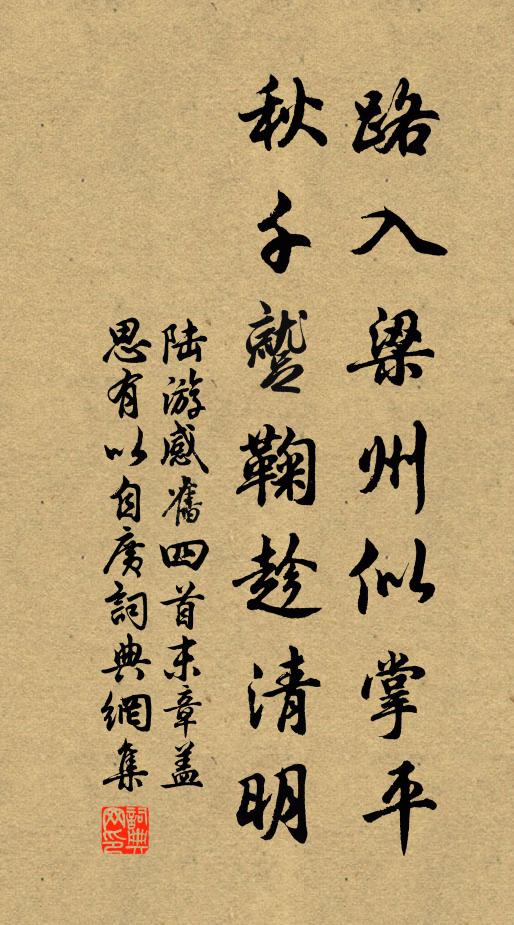 路入梁州似掌平
秋千蹵鞠趁清明
陆游感舊四首末章盖
思有以自廣詞典網集
詞典网印